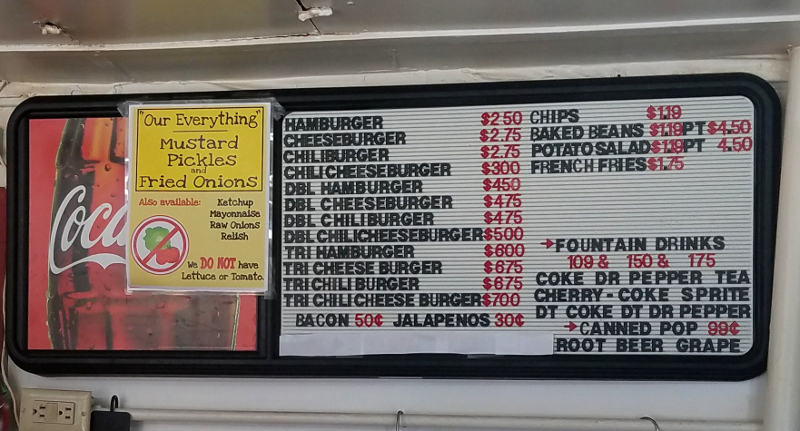 Coca
"Our Everything"
Mustard
Pickles
and
Fried Onions
Also available:
Ketchup
Mayonnaise
Raw Onions
Relish
We DO NOT have
Lettuce or Tomato.
HAMBURGER $2 50
CHEESEBURGER $2.75
CHILIBURGER $2.75
CHILI CHEESEBURGER $300
DBL HAMBURGER $450
DBL CHEESEBURGER $475
DBL CHILIBURGER $475
DBL CHILICHEESEBURGER $500
TRI HAMBURGER $600
TRI CHEESE BURGER $675
TRI CHILI BURGER $675
TRI CHILI CHEESE BURGER $700
BACON 50¢ JALAPENOS 30¢
CHIPS $1.19
BAKED BEANS $1.19 PT $4.50
POTATO SALAD $1.19 PT 4.50
FRENCH FRIES $1.75
→FOUNTAIN DRINKS
109 & 150 & 175
COKE DR PEPPER TEA
CHERRY-COKE SPRITE
DT COKE DT DR PEPPER
→CANNED POP 99¢
ROOT BEER GRAPE